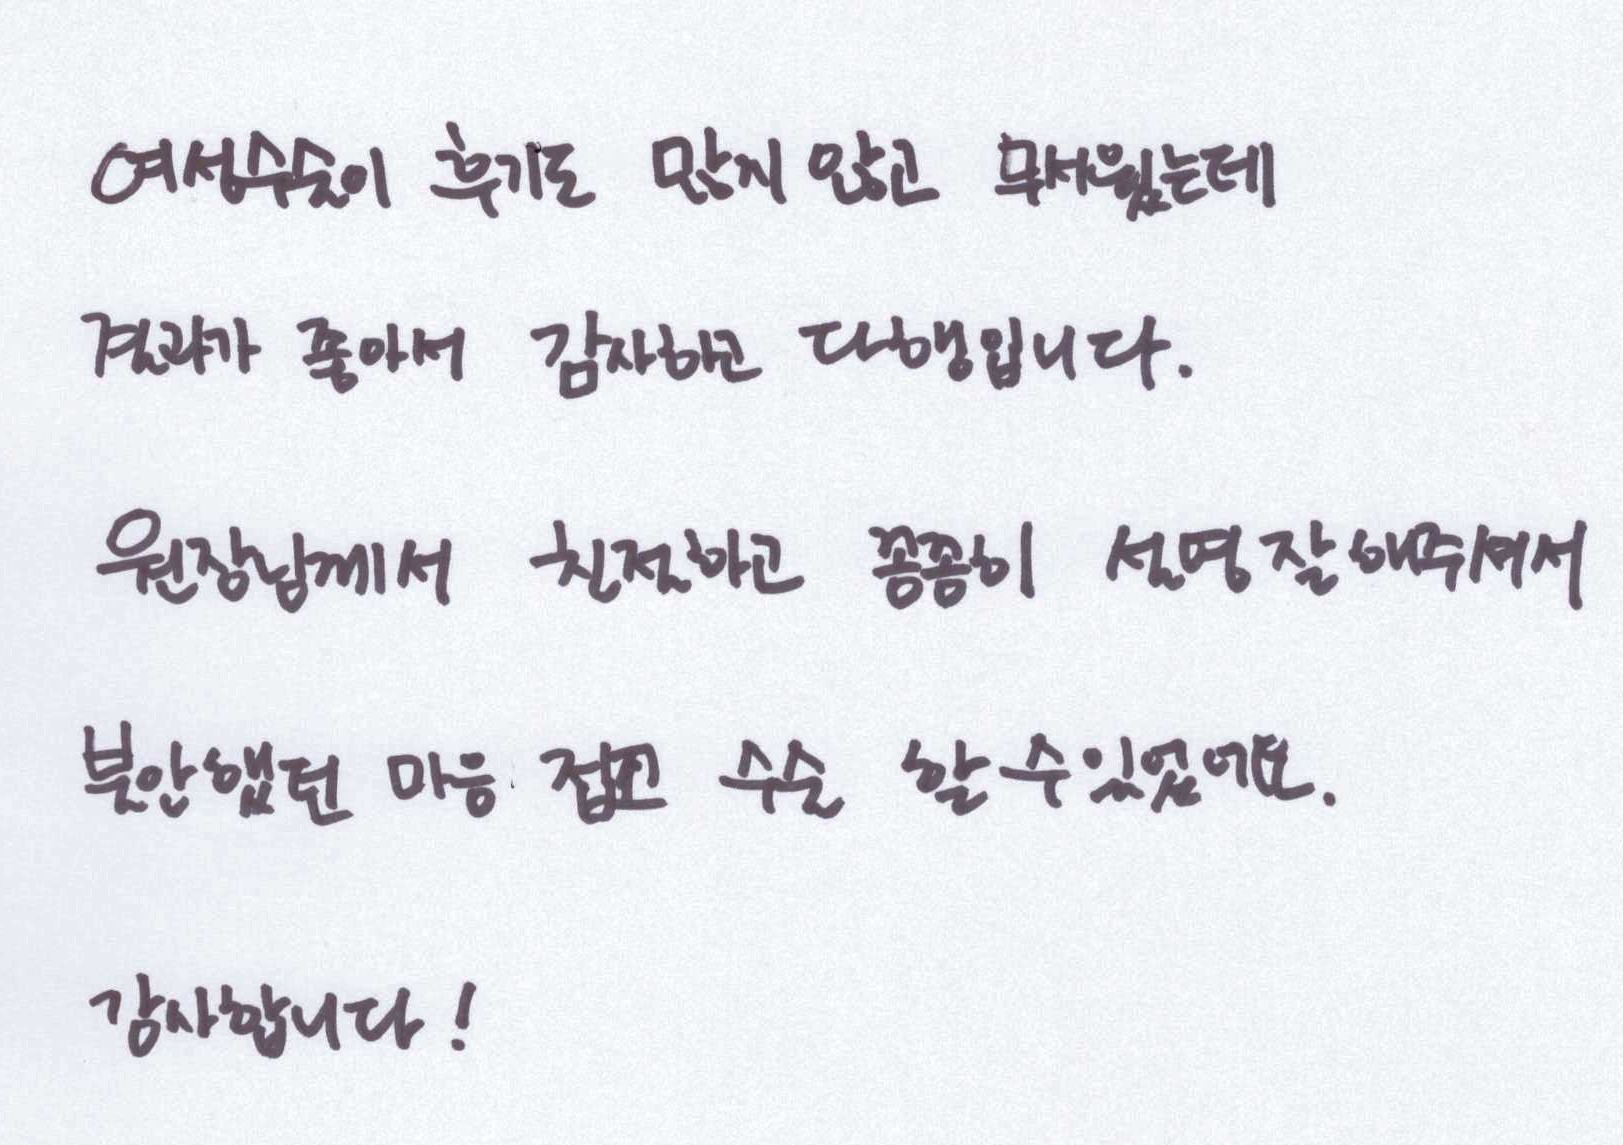 여성수술이 후기도 많지 않고 무서웠는데
결과가 좋아서 감사하고 다행입니다.
원장님께서 친절하고 꼼꼼히 설명 잘해주셔서
불안했던 마음 접고 수술 할 수 있었어요.
감사합니다!